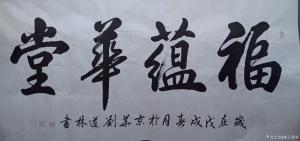 福蕴華堂
歲在戊戌春月於京華劉道林書